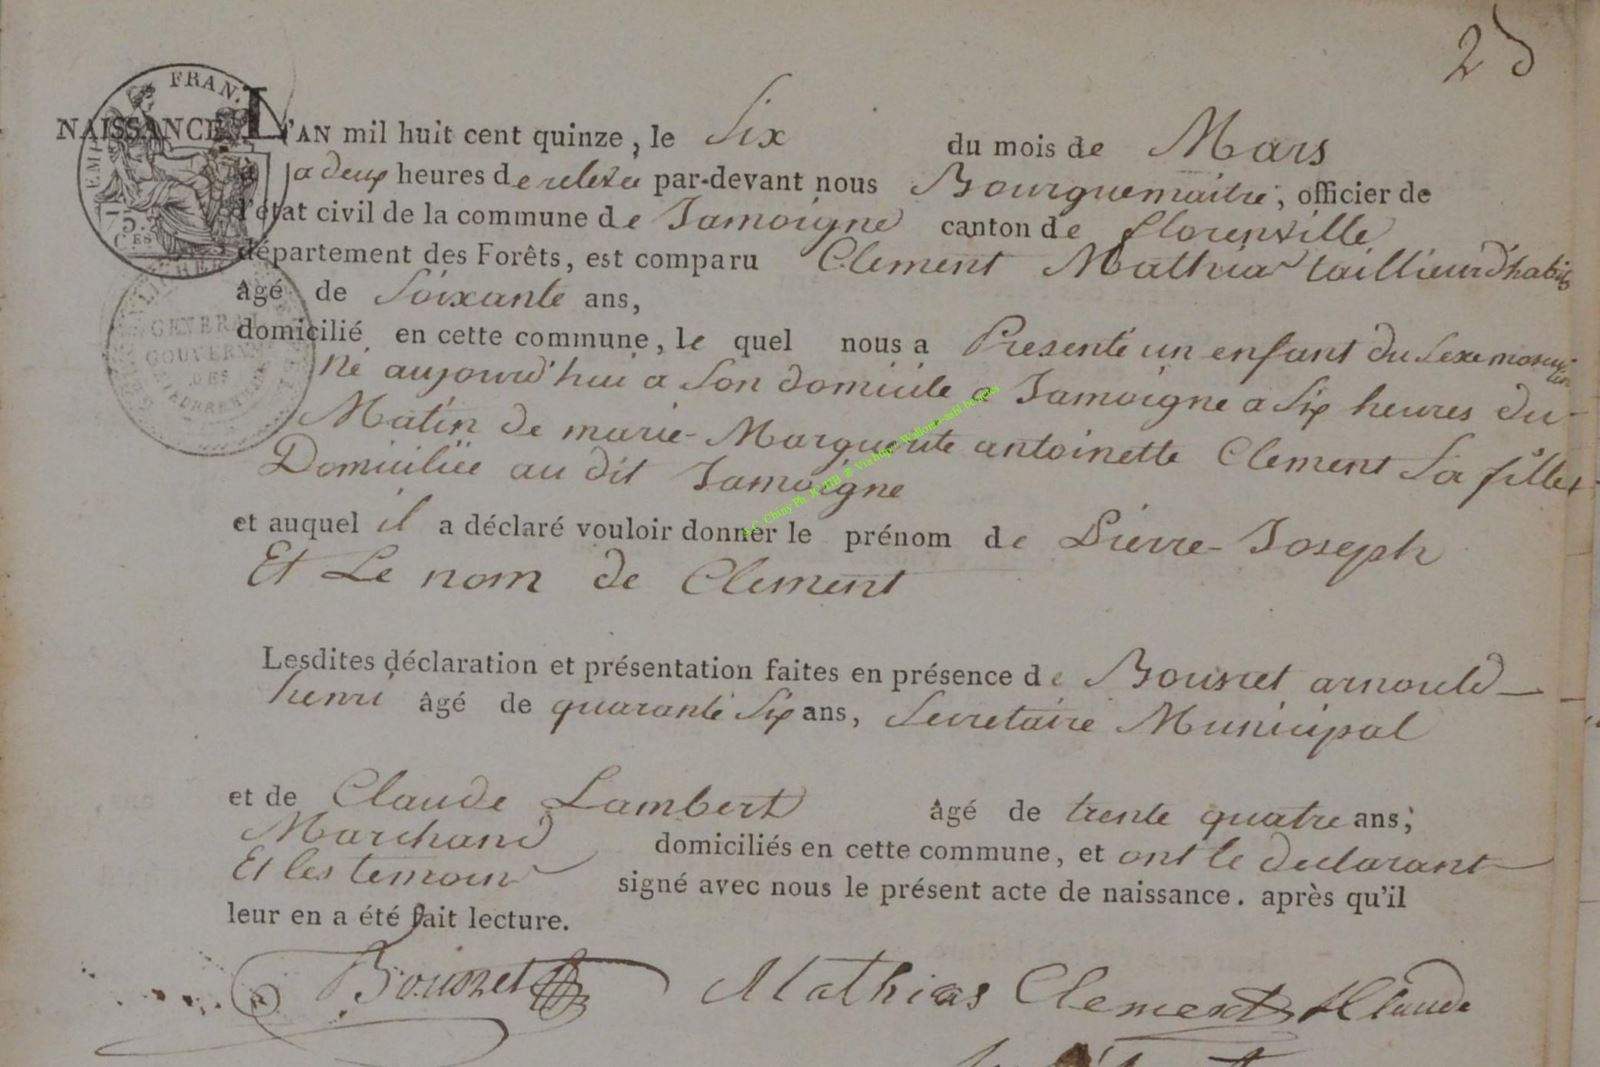 25
FRAN.
EMP
75
C.ES
NAISSANCE. L'AN mil huit cent quinze, le Six du mois de Mars
a deux heures de relevée par-devant nous Bourguemaitre, officier de
l'état civil de la commune de Jamoigne canton de florenville
département des Forêts, est comparu Clement Mathias taillieur d'habits
âgé de Soixante ans,
domicilié en cette commune, le quel nous a Presenté un enfant du Sexe masculin
Né aujourd'hui a Son domicile a Jamoigne a Six heures du
Matin de marie-Marguerite antoinette Clement Sa fille
Domiciliée au dit Jamoigne
et auquel il a déclaré vouloir donner le prénom de Pierre-Joseph
Et Le nom de Clement
Lesdites déclaration et présentation faites en présence de arnould
henri âgé de quarante Six ans, Secretaire Municipal
et de Claude Lambert âgé de trente quatre ans;
Marchand domiciliés en cette commune, et ont le declarant
Et les temoins signé avec nous le présent acte de naissance. après qu'il
leur en a été fait lecture.
Mathias Clement Claude
GENERAL
GOUVERN
DES